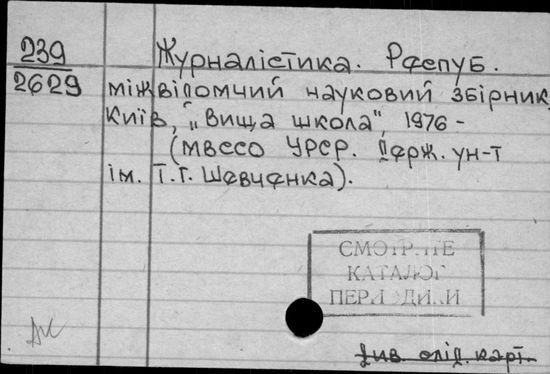 239
2629
Журналістика. Респуб.
міжвідомчий науковий збірник,
Київ, „Вища школа", 1976 -
(МВССО УРСР. Держ. ун-т
ім. Т. Г. Шевченка).
СМОТРИТЕ
КАТАЛОГ
ПЕРИОДИКИ
Див. слід. карт.